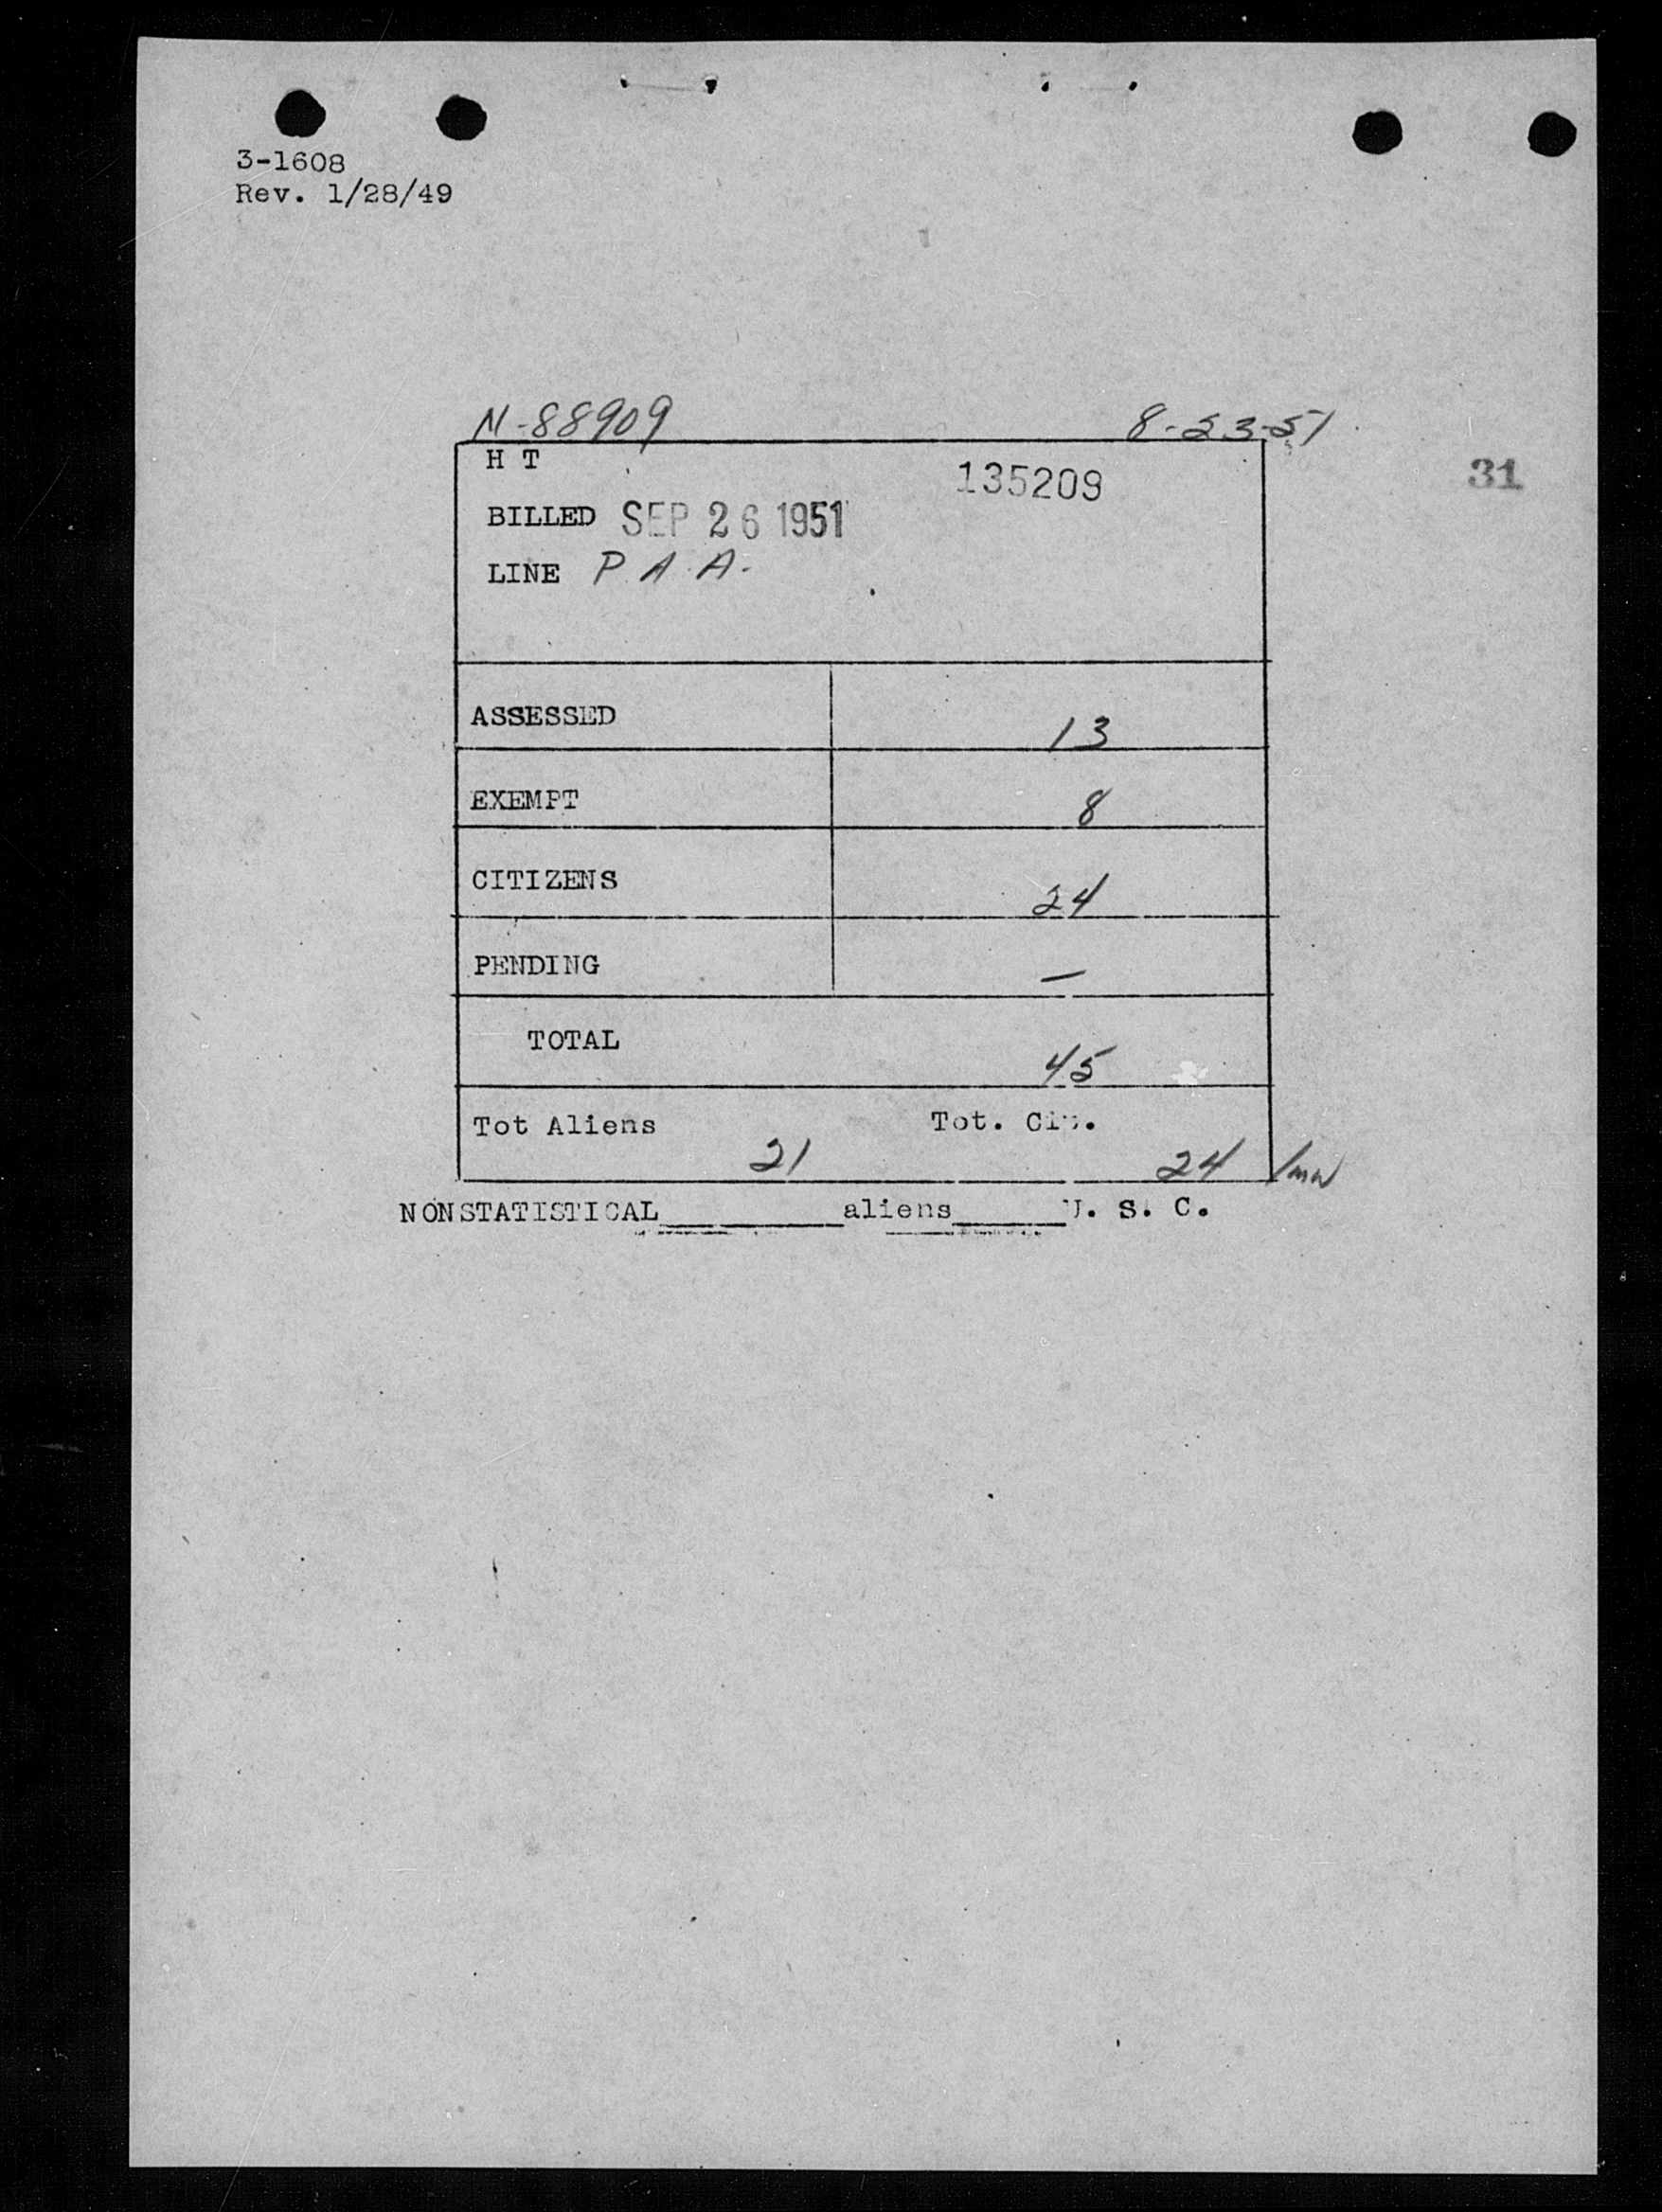 3-1608
Rev. 1/28/49
N-88909 8-23-51
H T 135209 31
BILLED SEP 26 1951
LINE P.A.A.
ASSESSED 13
EXEMPT 8
CITIZENS 24
PENDING —
TOTAL 45
Tot Aliens Tot. Cit.
21 24 /mw
NONSTATISTICAL________aliens_____U. S. C.